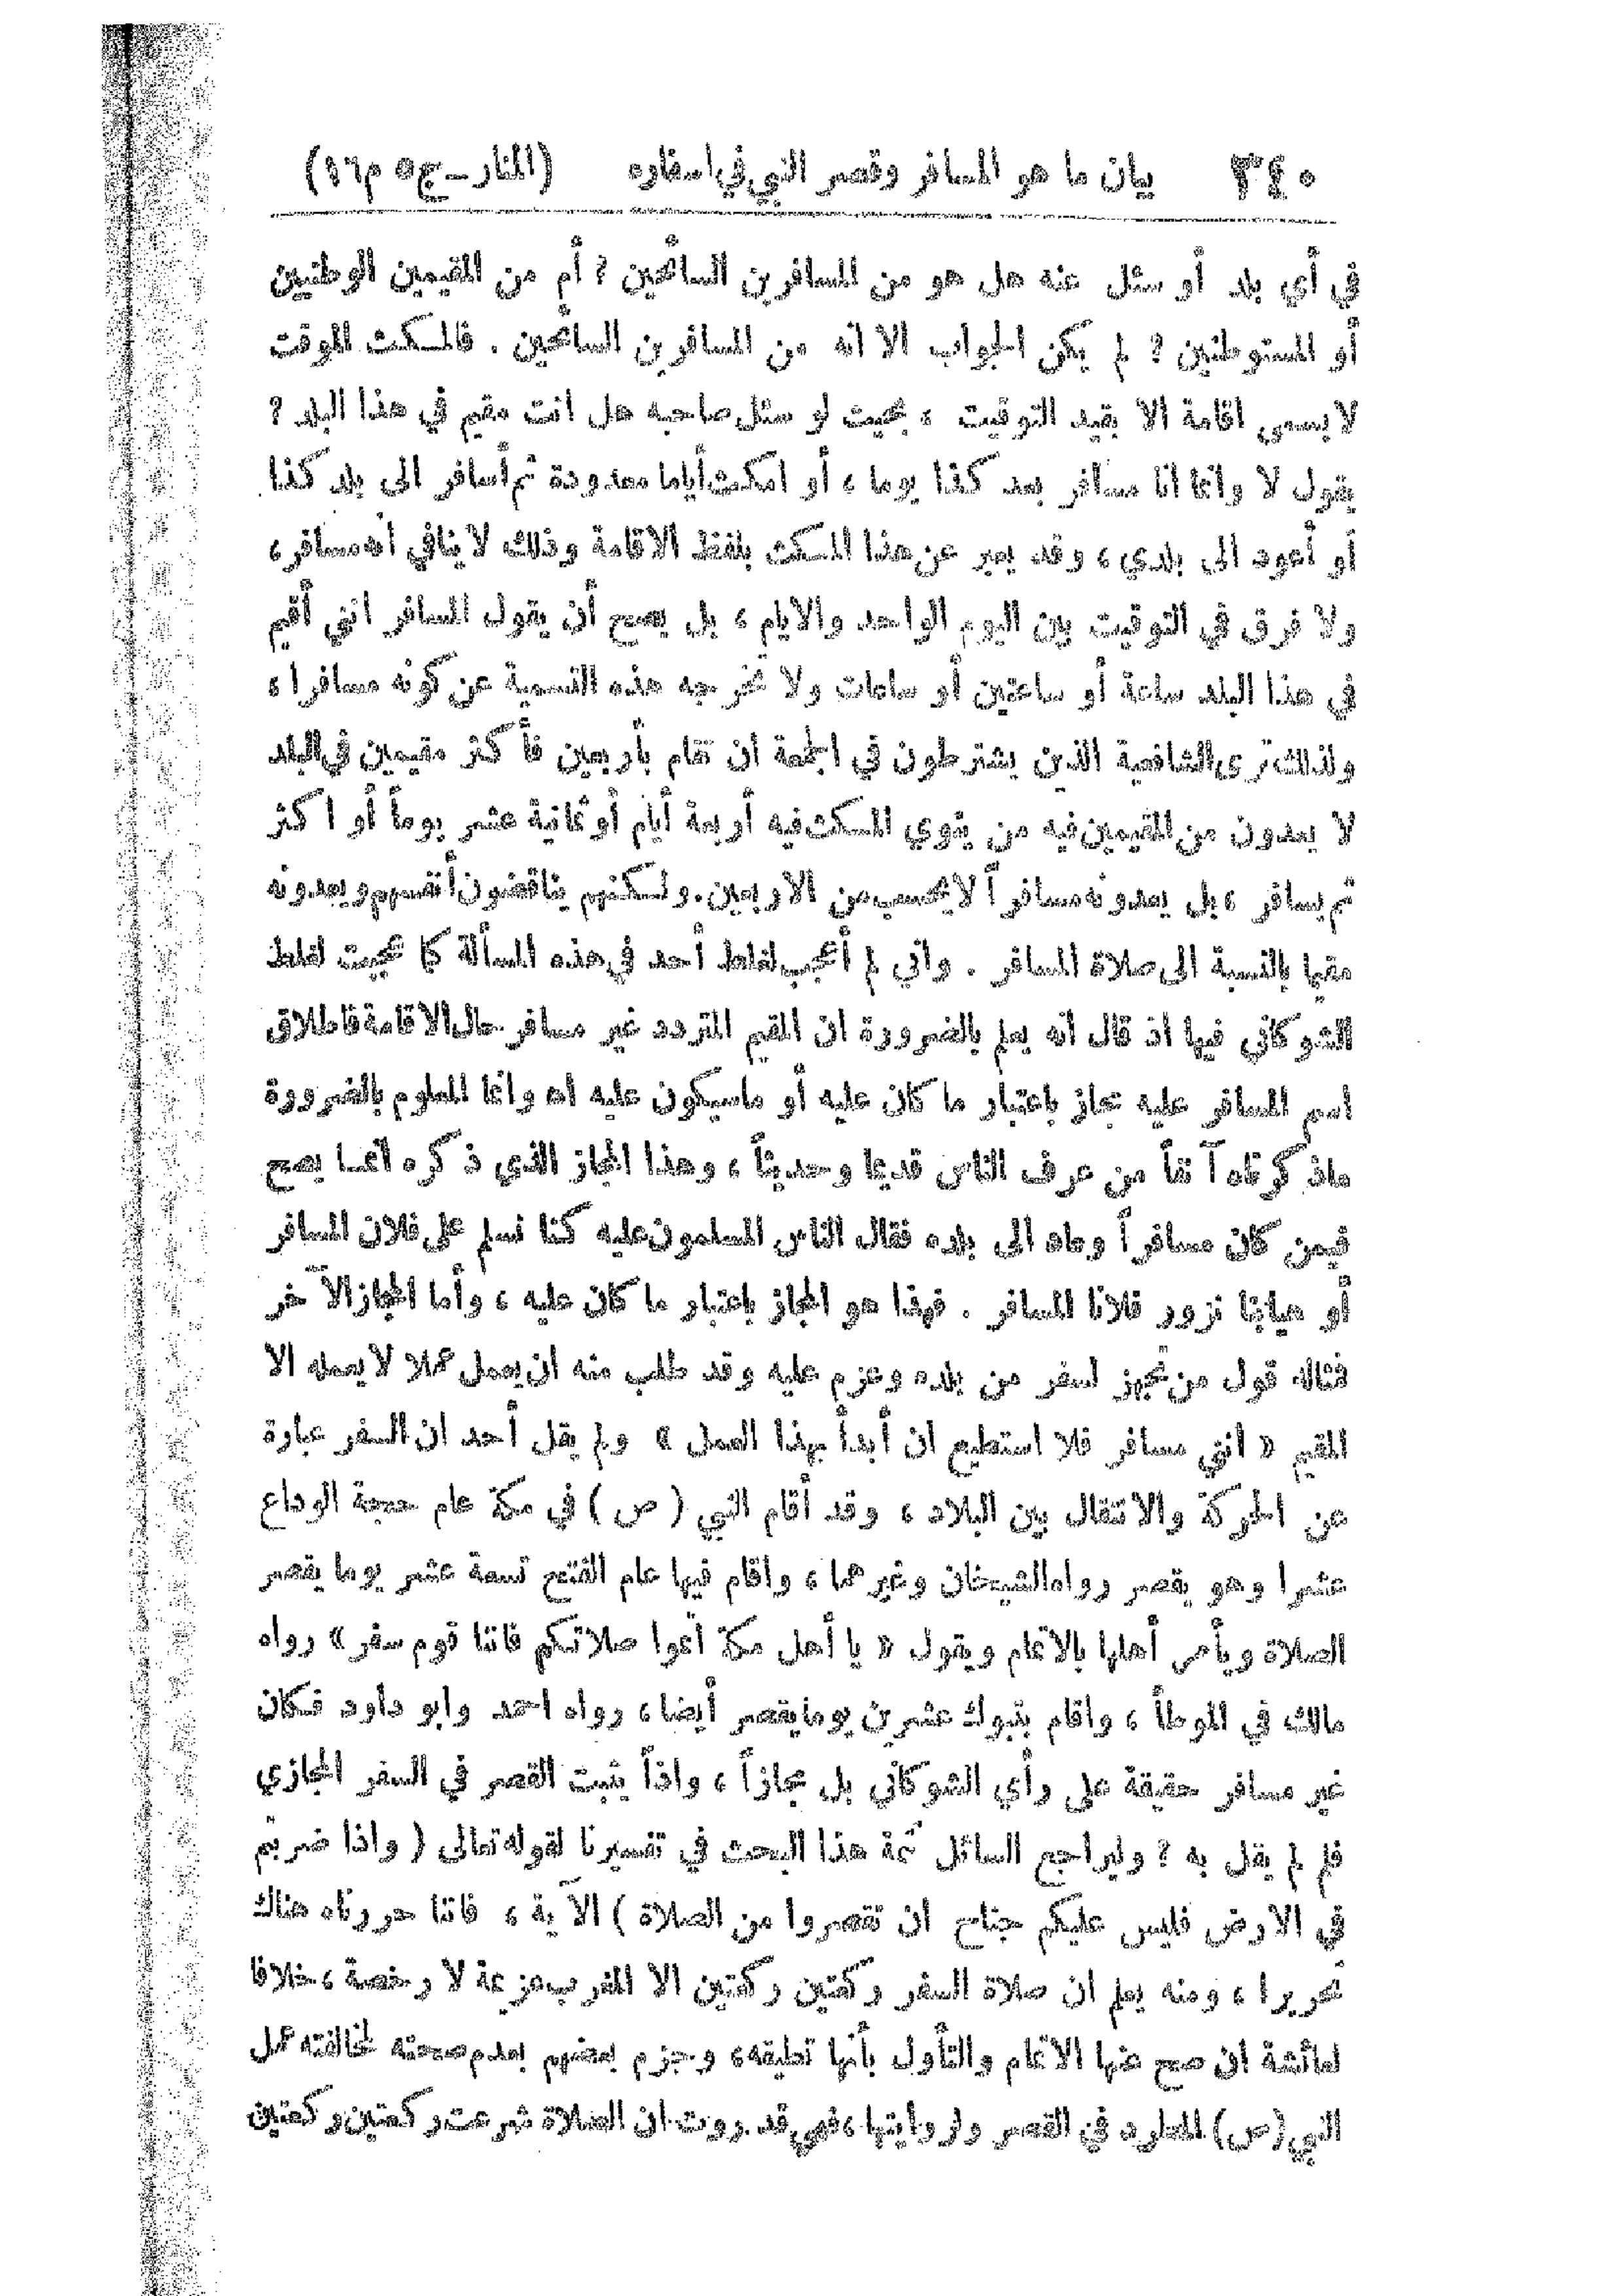 ٣٤٠ بيان ما هو المسافر وقصر النبي في اسفاره (المنار ــ ج٥ م١٦)
في أي بلد أو سئل عنه هل هو من المسافرين السائحين ? أم من المقيمين الوطنيين
أو المستوطنين ? لم يكن الجواب الا انه من المسافرين السائحين . فالمكث الموقت
لا يسمى اقامة الا بقيد التوقيت ، بحيث لو سئل صاحبه هل انت مقيم في هذا البلد ?
يقول لا وانما انا مسافر بعد كذا يوما ، أو امكث أياما معدودة ثم أسافر الى بلد كذا
أو أعود الى بلدي ، وقد يعبر عن هذا المكث بلفظ الاقامة وذلك لا ينافي انه مسافر ،
ولا فرق في التوقيت بين اليوم الواحد والايام ، بل يصح أن يقول المسافر انني أقيم
في هذا البلد ساعة أو ساعتين أو ساعات ولا تخرجه هذه التسمية عن كونه مسافرا ،
ولذلك ترى الشافعية الذين يشترطون في الجمعة ان تقام بأربعين فأكثر مقيمين في البلد
لا يعدون من المقيمين فيه من ينوي المكث فيه أربعة أيام أو ثمانية عشر يوماً أو اكثر
ثم يسافر ، بل يعدونه مسافراً لا يحسب من الاربعين . ولكنهم يناقضون أنفسهم ويعدونه
مقيما بالنسبة الى صلاة المسافر . واني لم أعجب لغلط أحد في هذه المسألة كما عجبت لغلط
الشوكاني فيها اذ قال انه يعلم بالضرورة ان المقيم المتردد غير مسافر حال الاقامة فاطلاق
اسم المسافر عليه مجاز باعتبار ما كان عليه أو ما سيكون عليه اه وانما المعلوم بالضرورة
ما ذكرناه آنفاً من عرف الناس قديما وحديثاً ، وهذا المجاز الذي ذكره انما يصح
فيمن كان مسافراً وعاد الى بلده فقال الناس المسلمون عليه كنا نسلم على فلان المسافر
أو هيابنا نزور فلانا المسافر . فهذا هو المجاز باعتبار ما كان عليه ، وأما المجاز الآخر
فمثاله قول من تجهز لسفر من بلده وعزم عليه وقد طلب منه ان يعمل عملا لا يعمله الا
المقيم « انني مسافر فلا استطيع ان أبدأ بهذا العمل » ولم يقل أحد ان السفر عبارة
عن الحركة والانتقال بين البلاد ، وقد أقام النبي ( ص ) في مكة عام حجة الوداع
عشرا وهو يقصر رواه الشيخان وغيرهما ، واقام فيها عام الفتح تسعة عشر يوما يقصر
الصلاة ويأمر أهلها بالاتمام ويقول « يا أهل مكة أتموا صلاتكم فاننا قوم سفر » رواه
مالك في الموطأ ، واقام بتبوك عشرين يوما يقصر أيضا ، رواه احمد وابو داود فكان
غير مسافر حقيقة على رأي الشوكاني بل مجازاً ، واذاً يثبت القصر في السفر المجازي
فلم لم يقل به ? وليراجع السائل تتمة هذا البحث في تفسيرنا لقوله تعالى ( واذا ضربتم
في الارض فليس عليكم جناح ان تقصروا من الصلاة ) الآية ، فاننا حررناه هناك
تحريرا ، ومنه يعلم ان صلاة السفر ركعتين ركعتين الا المغرب عزيمة لا رخصة ، خلافا
لعائشة ان صح عنها الاتمام والتأول بأنها تطيقه ، وجزم بعضهم بعدم صحته لمخالفته عمل
النبي (ص) المطرد في القصر ولروايتها ، فهي قد روت ان الصلاة شرعت ركعتين ركعتين